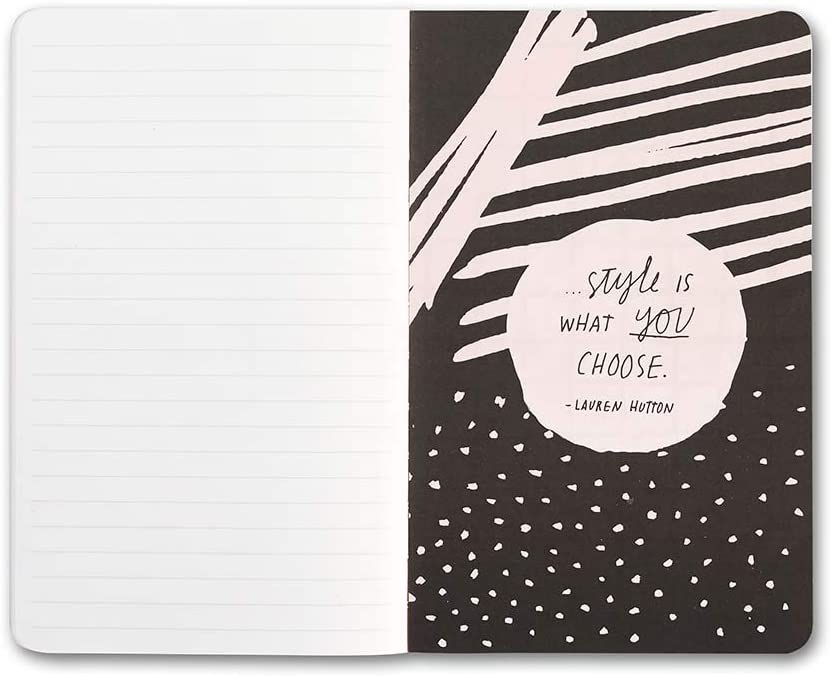 ...style is
WHAT YOU
CHOOSE.
-LAUREN HUTTON